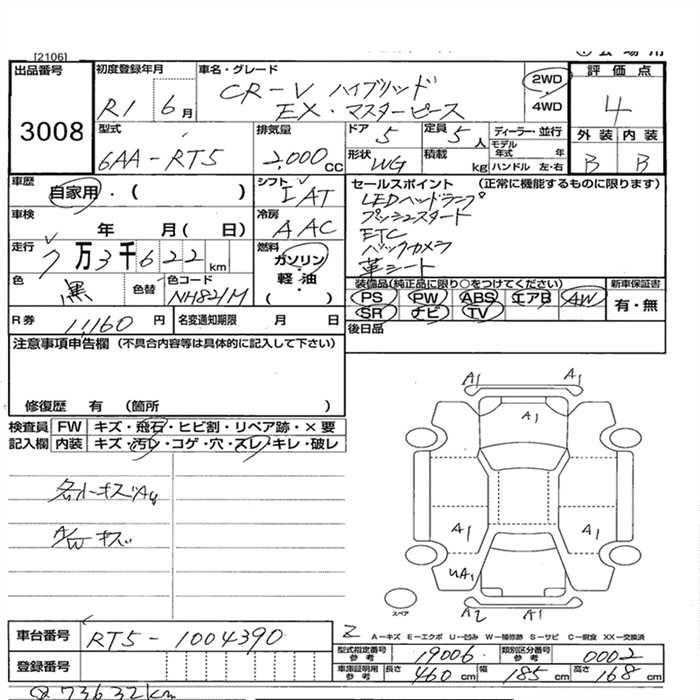 [2106]
出品番号
3008
初度登録年月
R1 6月
車名・グレード
CR-V ハイブリッド
EX・マスターピース
2WD
4WD
評価点
4
外装 内装
B B
型式
6AA-RT5
排気量
2,000cc
ドア 5
定員 5人
形状 WG
積載 kg
ディーラー・並行
モデル年式 年
ハンドル 左・右
車歴
自家用・( )
シフト
IAT
車検
年 月( 日)
冷房
AAC
走行
7万3千622km
燃料
ガソリン・
軽・油
( )
色
黒
色替
色コード
NH821M
R券
11,160円
名変通知期限 月 日
セールスポイント (正常に機能するものに限ります)
LEDヘッドランプ
プッシュスタート
ETC
バックカメラ
革シート
装備品(純正品に限り○をつけてください)
PS PW ABS エアB AW
SR ナビ TV
新車保証書
有・無
後日品
注意事項申告欄 (不具合内容等は具体的に記入して下さい)
修復歴 有 (箇所 )
検査員
記入欄
FW キズ・飛石・ヒビ割・リペア跡・×要
内装 キズ・汚レ・コゲ・穴・スレ・キレ・破レ
A/Wキズ
A1 A1
A1
A1 A1
UA1
A2 A1
スペア
車台番号 RT5-1004390
登録番号
A-キズ E-エクボ U-凹み W-補修跡 S-サビ C-腐食 XX-交換済
型式指定番号
参考
19006
類別区分番号
参考
0002
車庫証明用
参考
長さ 460cm 幅 185cm 高さ 168cm
73632km